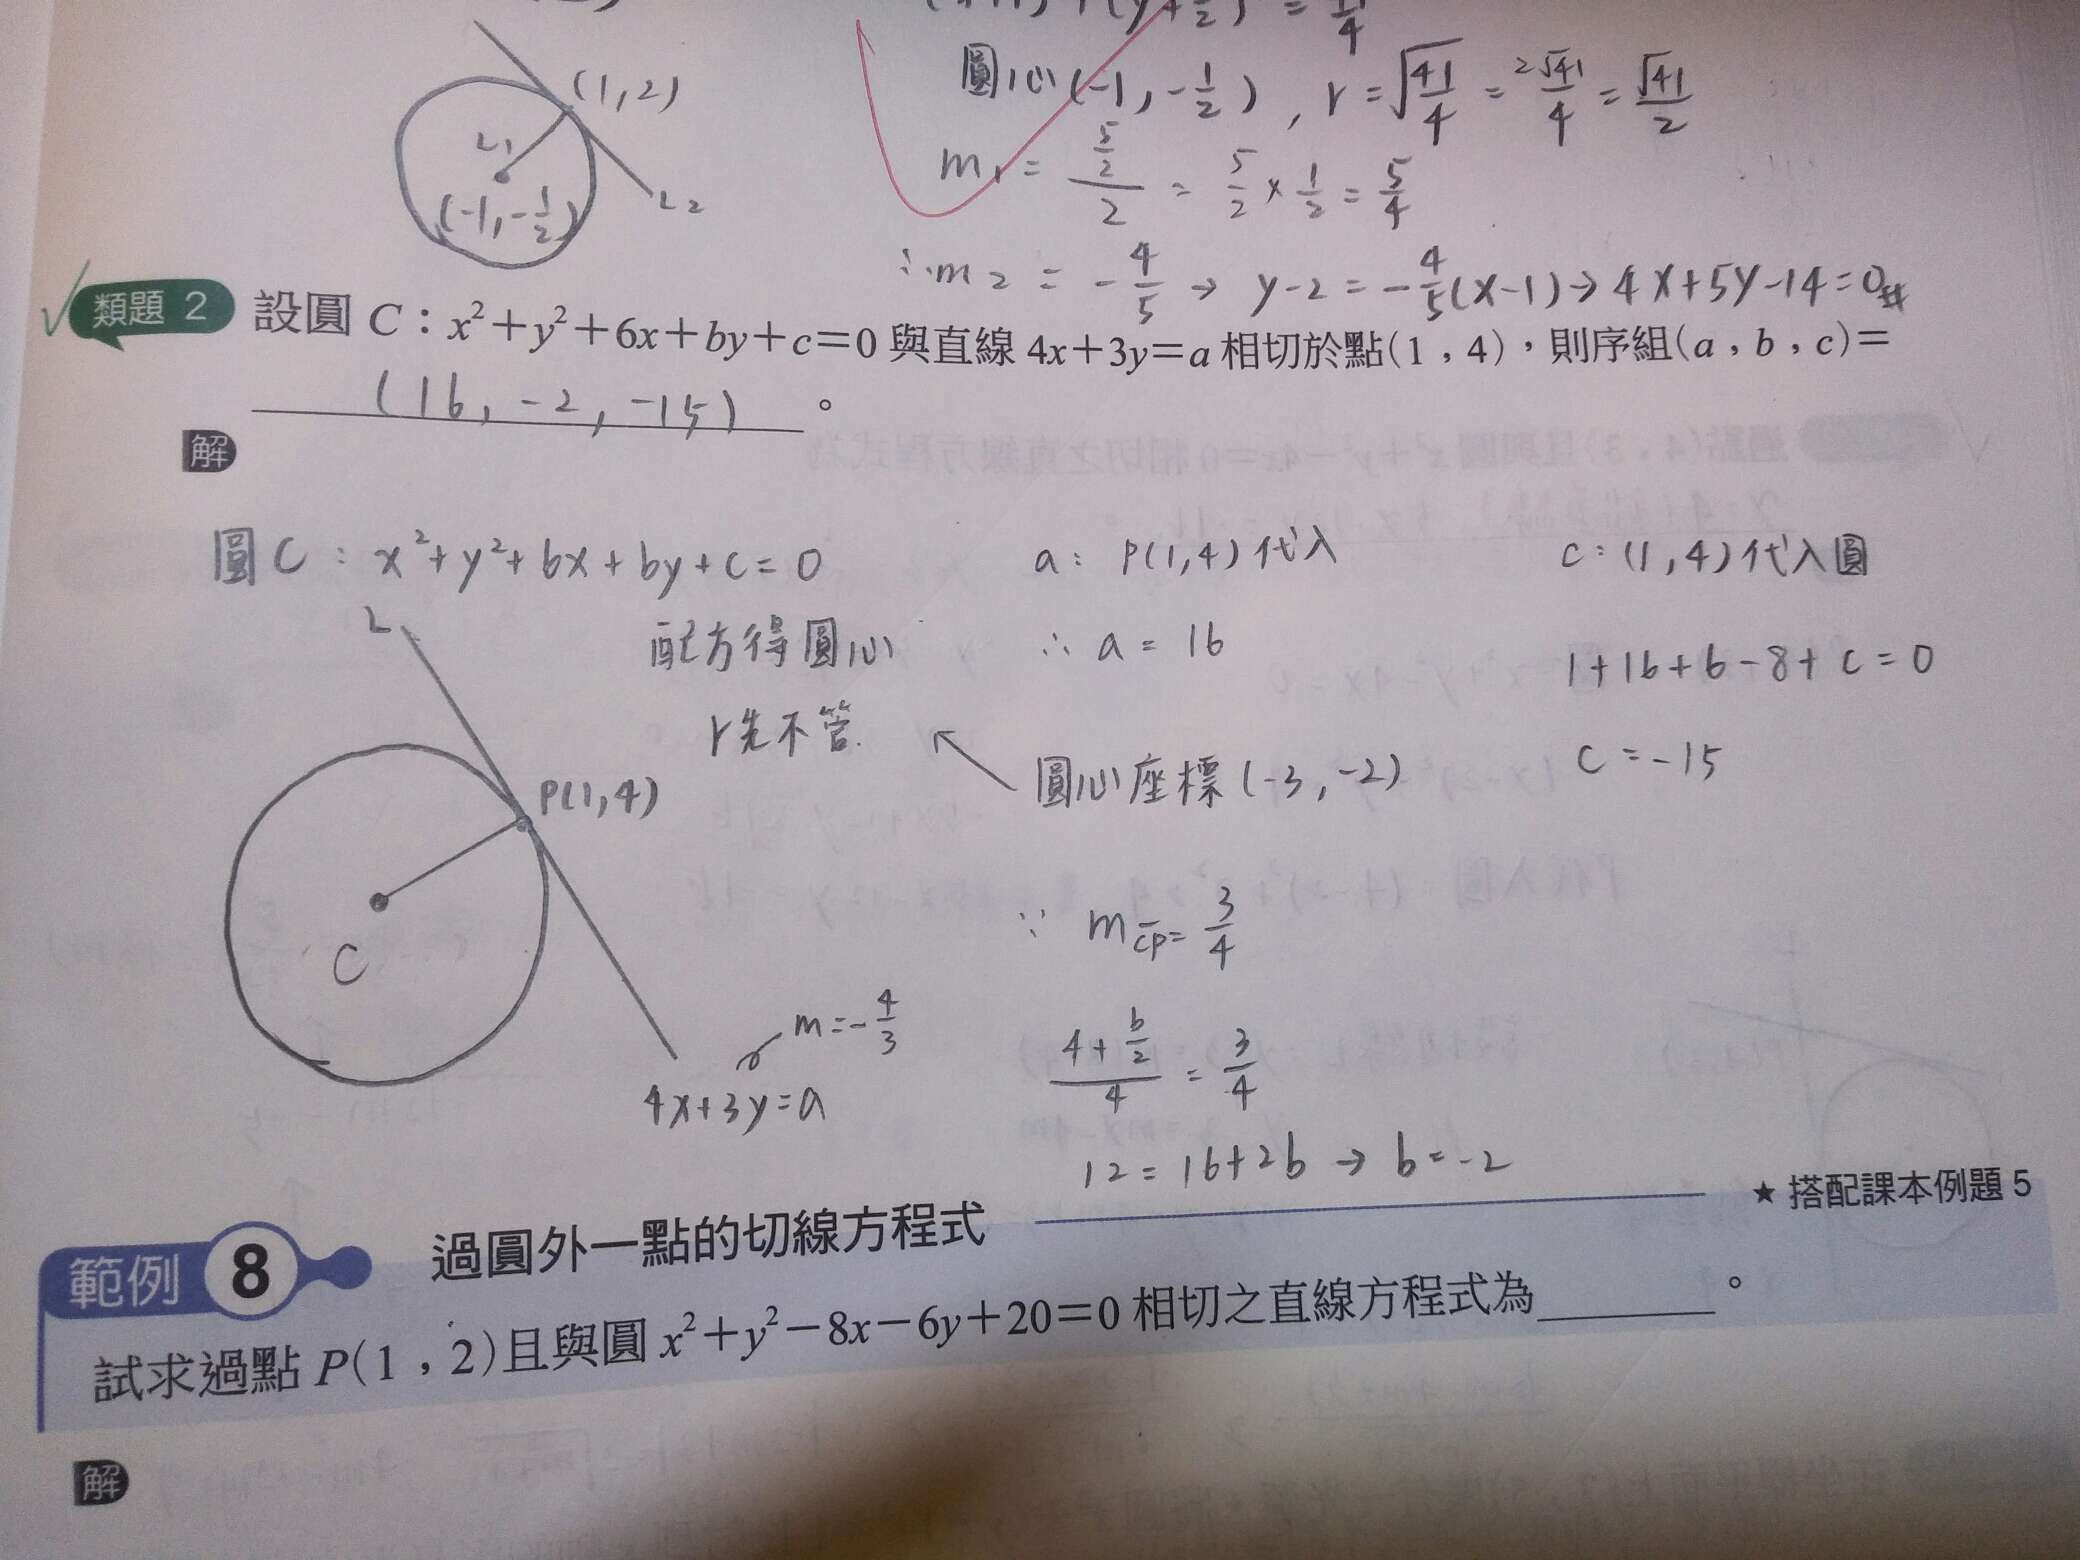 圓心(-1, -1/2), r = √(41/4) = 2√41/4 = √41/2
(1,2)
L₁
(-1, -1/2)
L₂
m₁ = (5/2)/2 = 5/2 × 1/2 = 5/4
∴ m₂ = -4/5 → y-2 = -4/5(x-1) → 4x+5y-14=0#
類題 2 設圓 C：x²+y²+6x+by+c=0 與直線 4x+3y=a 相切於點(1，4)，則序組(a，b，c)=
(16, -2, -15) 。
解
圓C : x²+y²+6x+by+c=0
配方得圓心
r先不管.
L
P(1,4)
C
m=-4/3
4x+3y=a
a: P(1,4)代入
∴ a = 16
圓心座標(-3, -2)
∵ m c̅p̅ = 3/4
(4+b/2)/4 = 3/4
12 = 16+2b → b=-2
c: (1,4)代入圓
1+16+6-8+c=0
c = -15
範例 8 過圓外一點的切線方程式 ★搭配課本例題 5
試求過點 P(1，2)且與圓 x²+y²-8x-6y+20=0 相切之直線方程式為______。
解